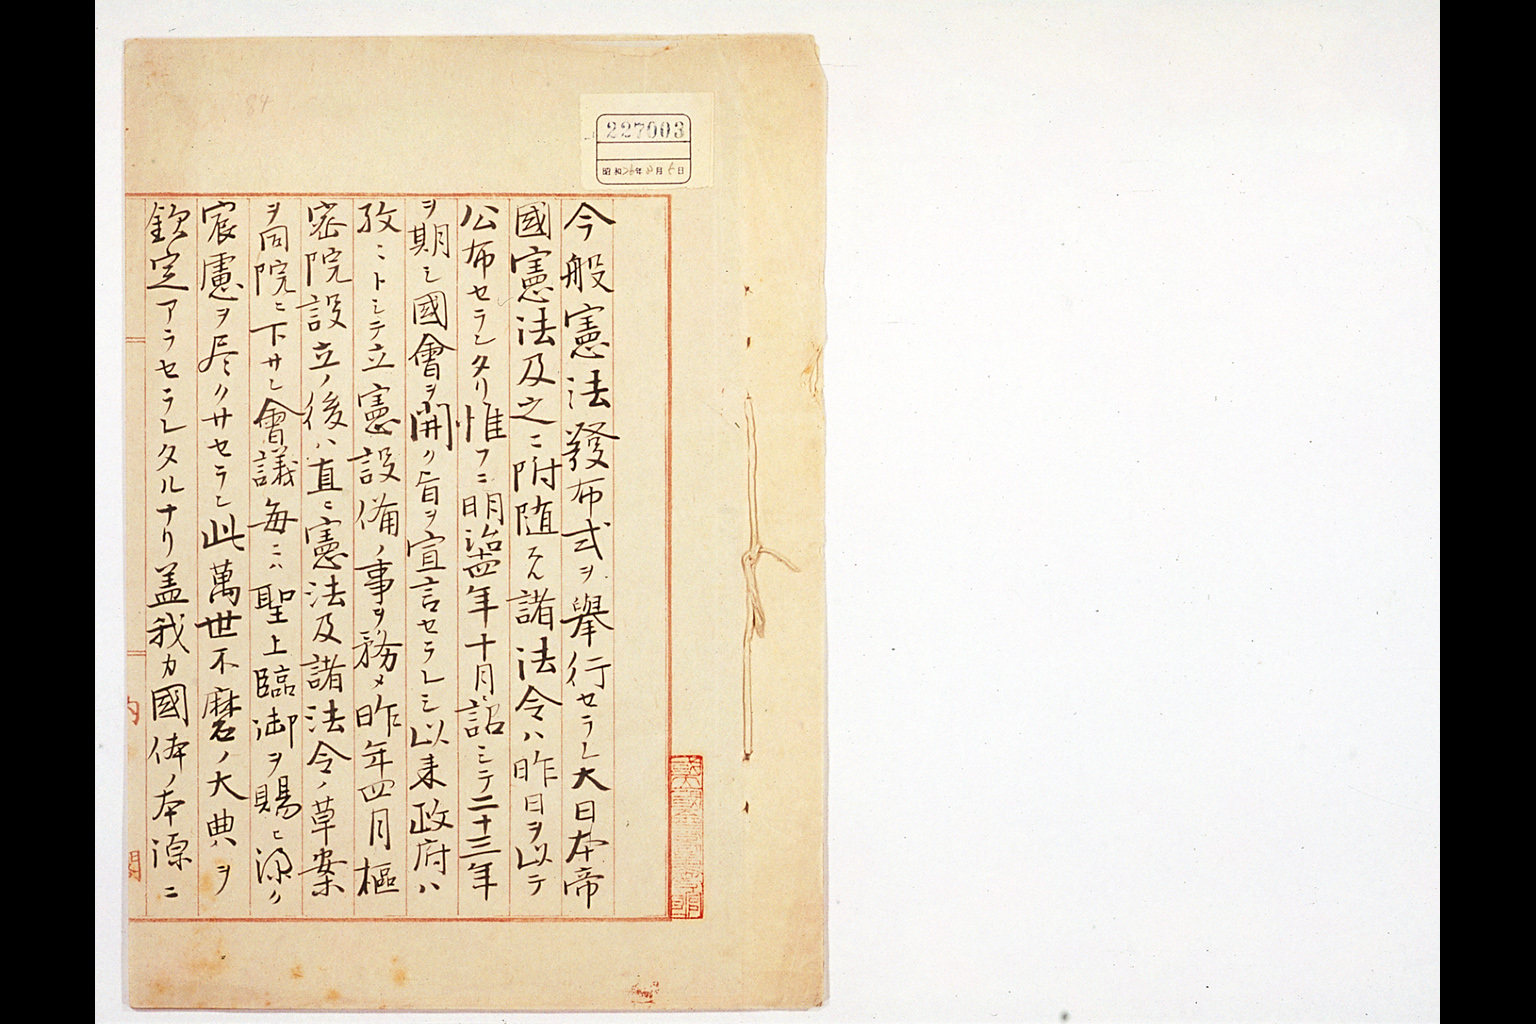 84
227003
昭和26年8月6日
今般憲法發布式ヲ舉行セラレ大日本帝
國憲法及之ニ附随スル諸法令ハ昨日ヲ以テ
公布セラレタリ惟フニ明治十四年十月詔シテ二十三年
ヲ期シ國會ヲ開クノ旨ヲ宣言セラレシ以来政府ハ
孜ニトシテ立憲設備ノ事ヲ務メ昨年四月樞
密院設立ノ後ハ直ニ憲法及諸法令ノ草案
ヲ同院ニ下サレ會議毎ニハ聖上臨御ヲ賜ヒ深ク
宸慮ヲ尽クサセラレ此萬世不磨ノ大典ヲ
欽定アラセラレタルナリ盖我カ國体ノ本源ニ
内
閣